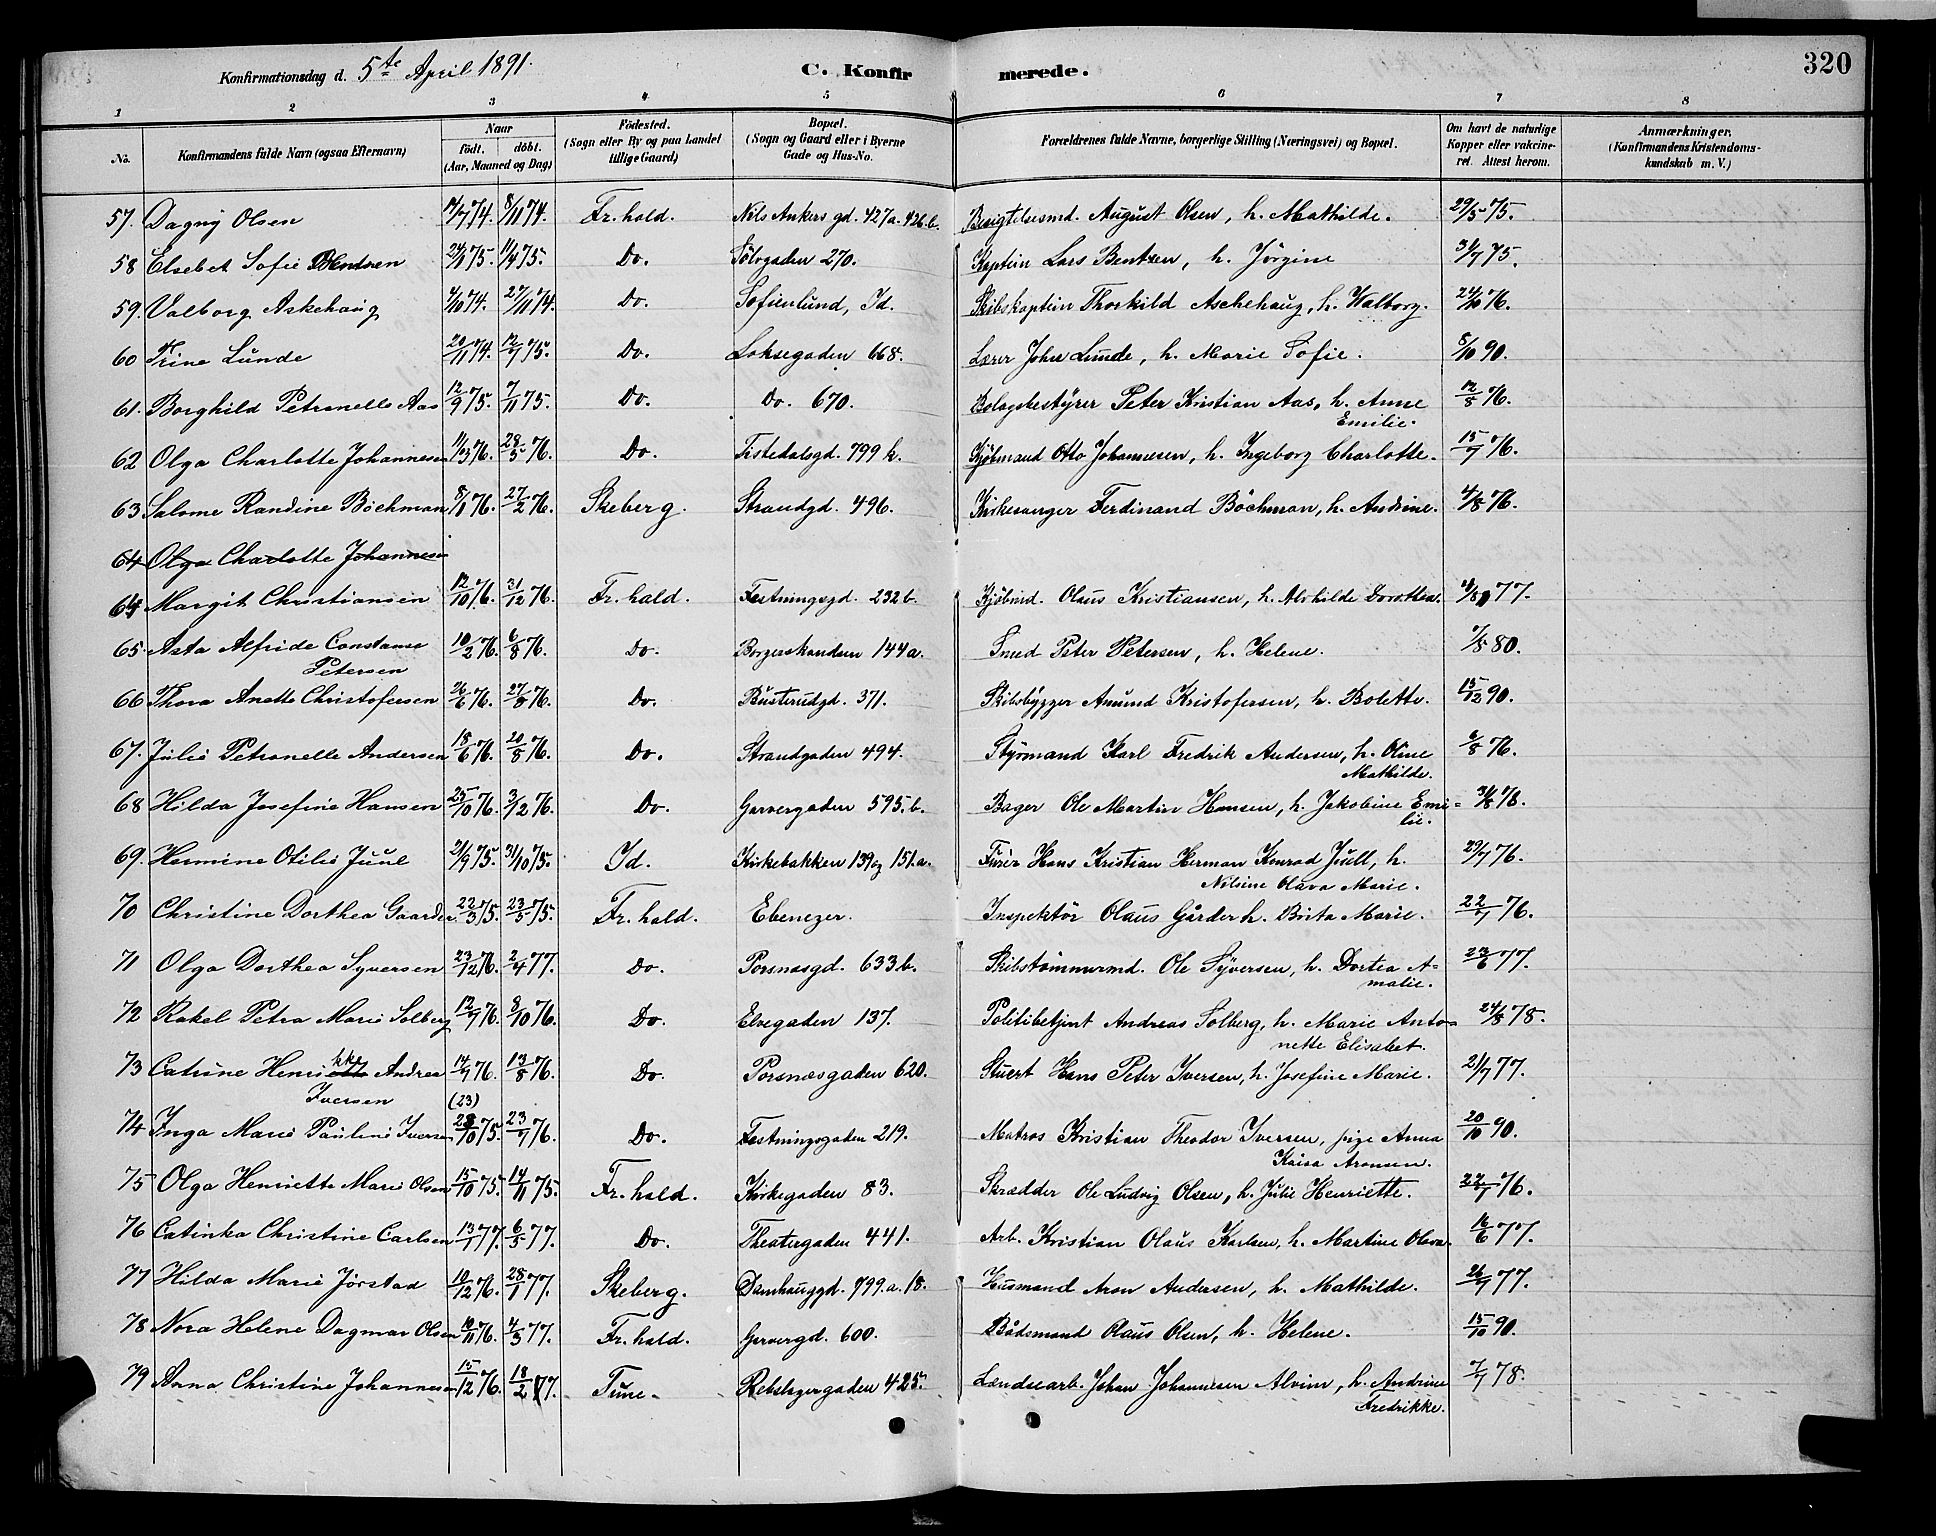 320
Konfirmationsdag d. 5te April 1891.
C. Konfirmerede.
1 2 3 4 5 6 7 8
No. Konfirmandens fulde Navn (ogsaa Efternavn) Naar født. døbt. (Aar, Maaned og Dag) Fødested. (Sogn eller By og paa Landet tillige Gaard) Bopæl. (Sogn og Gaard eller i Byerne Gade og Hus-No. Forældrenes fulde Navne, borgerlige Stilling (Næringsvei) og Bopæl. Om havt de naturlige Kopper eller vakcineret. Attest herom. Anmærkninger. (Konfirmandens Kristendomskundskab m. V.)
57. Dagny Olsen 17/7 74. 8/11 74. Fr.hald. Nils Ankers gd. 427a. 426.b. Besigtelsesmd. August Olsen, h. Mathilde. 29/5 75.
58 Elsebet Sofie Bentzen 24/1 75. 11/4 75. Do. Sölvgaden 270. Kaptein Lars Bentzen, h. Jörgine 31/7 75.
59. Valborg Askehaug 4/10 74. 27/11 74. Do. Sofienlund, Id. Skibskaptein Thorkild Aschehaug, h. Walborg. 24/10 76.
60 Trine Lunde 20/11 74. 12/7 75. Do. Loksegaden 668. Lærer John Lunde, h. Marie Sofie. 8/10 90.
61. Borghild Petronelle Aas 12/9 75. 7/11 75. Do. Do. 670. Bolagsbestyrer Peter Kristian Aas, h. Anne Emilie. 12/8 76.
62 Olga Charlotte Johannesen 11/3 76. 28/5 76. Do. Tistedalsgd. 799 k. Kjöbmand Otto Johannesen, h. Ingeborg Charlotte. 15/7 76.
63 Salome Randine Böchman 8/1 76. 27/2 76. Skeberg. Strandgd. 496. Kirkesanger Ferdinand Böchman, h. Andrine. 4/8 76.
64 Olga Charlotte Johannesen
64 Margit Christiansen 12/10 76. 31/12 76. Fr.hald. Festningsgd. 232 b. Kjöbmd. Olaus Kristiansen, h. Alvhilde Dorothea. 4/8 77.
65. Asta Alfride Constanse Petersen 10/2 76. 6/8 76. Do. Borgerskandsen 144a. Smed Peter Petersen, h. Helene. 7/8 80.
66 Thora Anette Christofersen 26/6 76. 27/8 76. Do. Busterudgd. 371. Skibsbygger Amund Kristofersen, h. Bolette. 15/12 90.
67. Julie Petronelle Andersen 18/6 76. 20/8 76. Do. Strandgaden 494. Styrmand Karl Fredrik Andersen, h. Oline Mathilde. 6/8 76.
68 Hilda Josefine Hansen 25/10 76. 3/12 76. Do. Garvergaden 595.b. Bager Ole Martin Hansen, h. Jakobine Emilie. 31/8 78.
69. Hermine Otilie Juul 21/9 75. 31/10 75. Id. Kirkebakken 139 og 151.a. Furér Hans Kristian Herman Konrad Juell, h. Nilsine Olava Marie. 29/7 76.
70 Christine Dorthea Gaarder 22/3 75. 23/5 75. Fr.hald. Ebenezer. Inspektör Olaus Gårder h. Brita Marie. 22/7 76.
71 Olga Dorthea Syversen 23/12 76. 2/4 77. Do. Porsnæsgd. 633 b. Skibstömmermd. Ole Syversen, h. Dortea Amalie. 23/6 77.
72 Rakel Petra Marie Solberg 12/9 76. 8/10 76. Do. Elvegaden 137. Politibetjent Andreas Solberg, h. Marie Antonette Elisabet. 24/8 78.
73 Catrine Henrikke Andrea Iversen 14/7 76. 13/8 76. Do. Porsnæsgaden 620. Stuert Hans Peter Iversen, h. Josefine Marie. 21/7 77.
74 Inga Marie Pauline Iversen (23) 28/10 75. 23/7 76. Do. Festningsgaden 219. Matros Kristian Theodor Iversen, pige Anna Kaisa Aronsen. 20/10 90.
75 Olga Henriette Marie Olsen 15/10 75. 14/11 75. Fr.hald. Kirkegaden 83. Skrædder Ole Ludvig Olsen, h. Julie Henriette. 22/7 76.
76 Catinka Christine Carlsen 13/1 77. 6/5 77. Do. Theatergaden 441. Arb. Kristian Olaus Karlsen, h. Martine Olava. 16/6 77.
77 Hilda Marie Jørstad 10/12 76. 28/1 77. Skeberg. Damhauggd. 799.a.18. Husmand Aron Andersen, h. Mathilde. 26/7 77.
78 Nora Helene Dagmar Olsen 10/11 76. 4/3 77. Fr.hald. Garvergd. 600. Bådsmand Olaus Olsen, h. Helene. 15/10 90.
79 Anna Christine Johannesen 15/12 76. 18/2 77. Tune. Rebslagergaden 425. Lændsearb. Johan Johannesen Alvim, h. Andrine Fredrikke. 7/7 78.